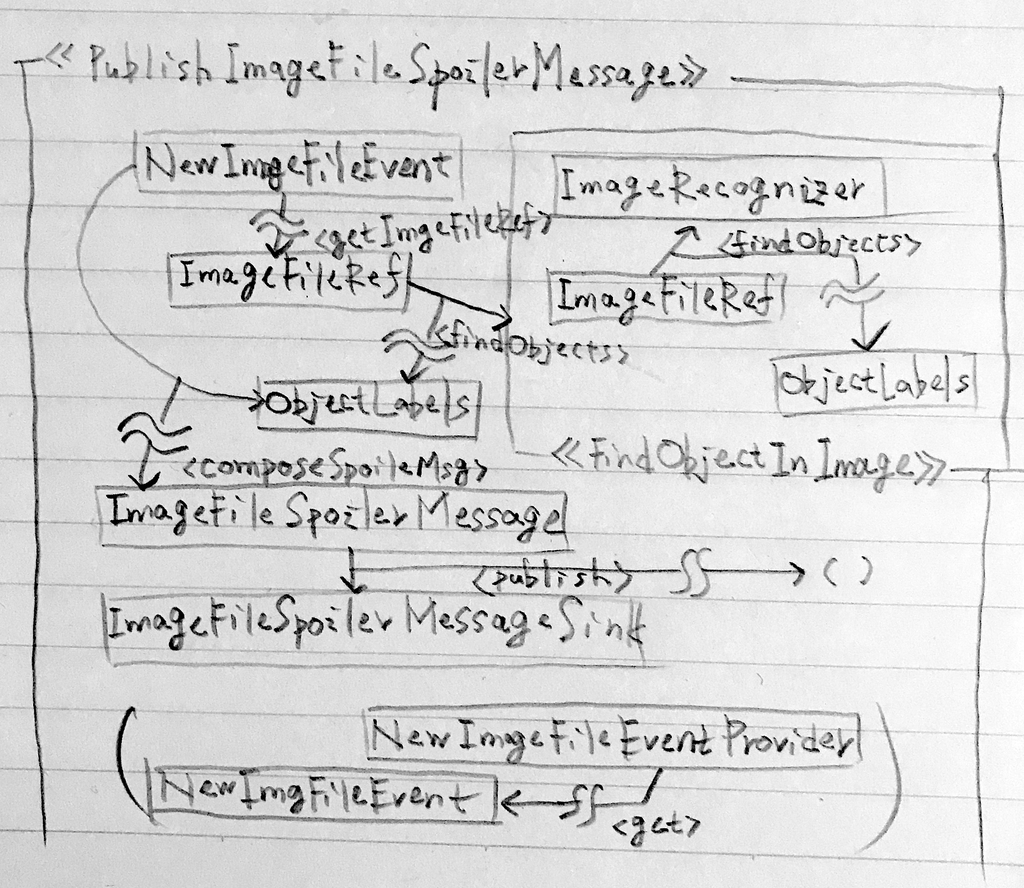 ≪PublishImageFileSpoilerMessage≫
NewImgeFileEvent
<getImgeFileRef>
ImageFileRef
<findObjects>
ObjectLabels
<composeSpoileMsg>
ImageFileSpoilerMessage
<publish> ( )
ImageFileSpoilerMessageSink
ImageRecognizer
<findObjects>
ImageFileRef
ObjectLabels
≪FindObjectInImage≫
( NewImageFileEventProvider )
NewImgFileEvent
<get>